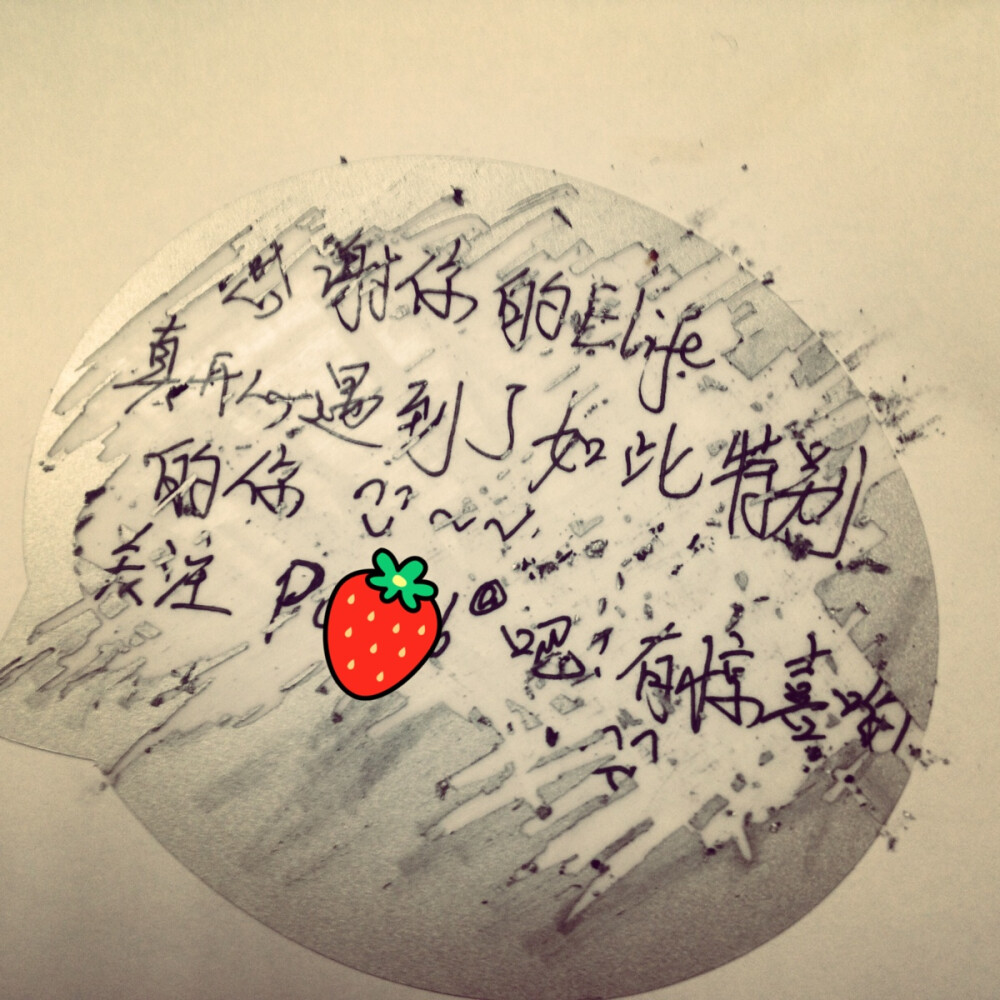 感谢你的Elife
真开心遇到了如此特别
的你 ~~
关注 P @ 吧! 有惊喜哟